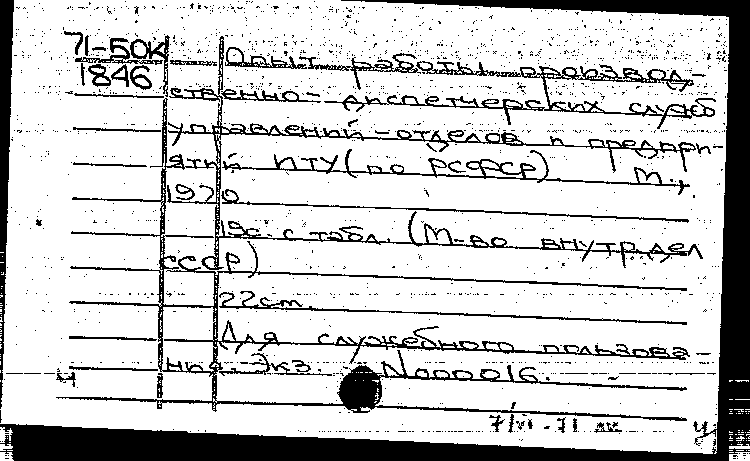 71-50К
1846
Опыт работы производ-
ственно-диспетчерских служб
управлений-отделов и предпри-
ятий ИТУ (по РСФСР). М.,
1970.
19с. с табл. (М-во внутр. дел
СССР)
22 cm.
Для служебного пользова-
ния. Экз. N000016.
ч
7/VI-71